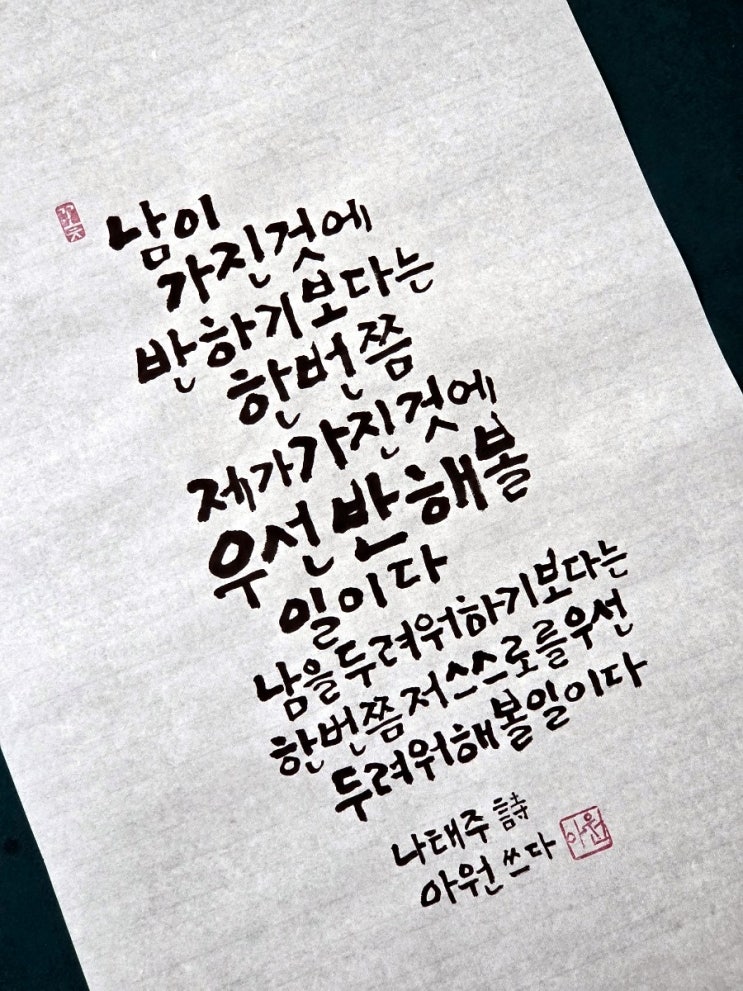 남이
가진것에
반하기보다는
한번쯤
제가가진것에
우선반해볼
일이다
남을두려워하기보다는
한번쯤저스스로를우선
두려워해볼일이다
나태주 詩
아원 쓰다
아원